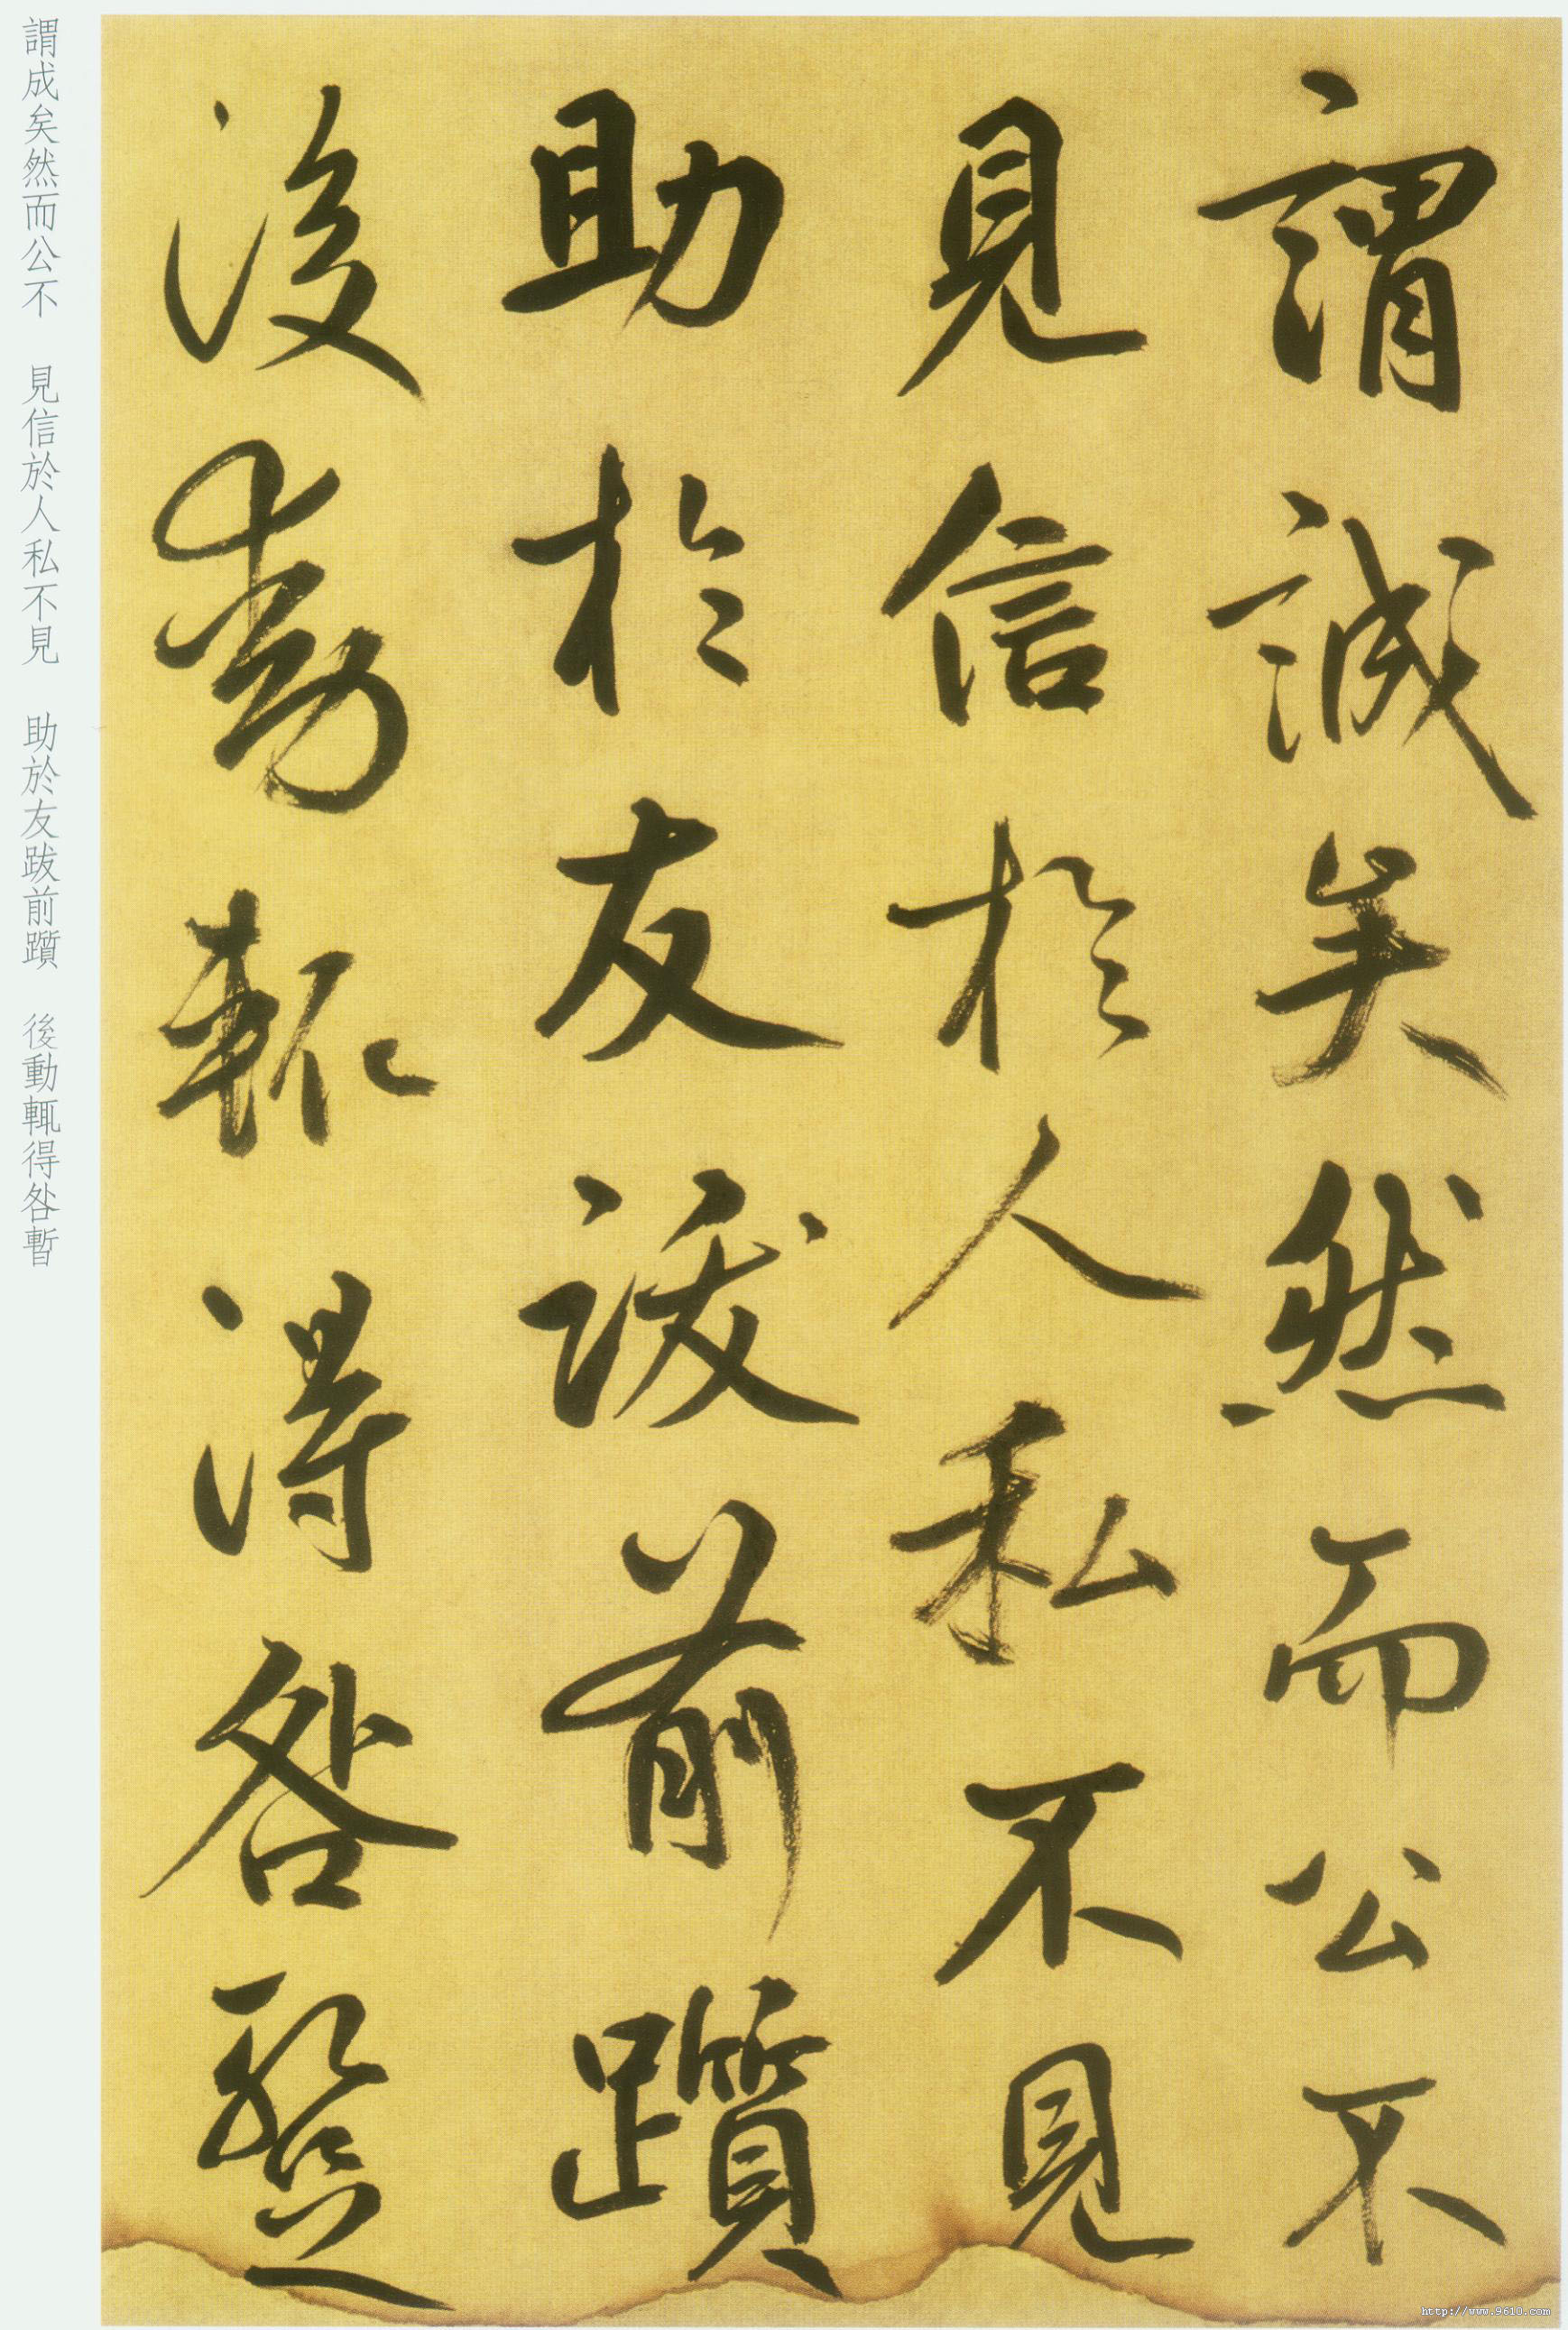 謂誠矣然而公不
見信於人私不見
助於友跋前躓
後動輒得咎暫
謂成矣然而公不 見信於人私不見 助於友跋前躓 後動輒得咎暫
http://www.9610.com